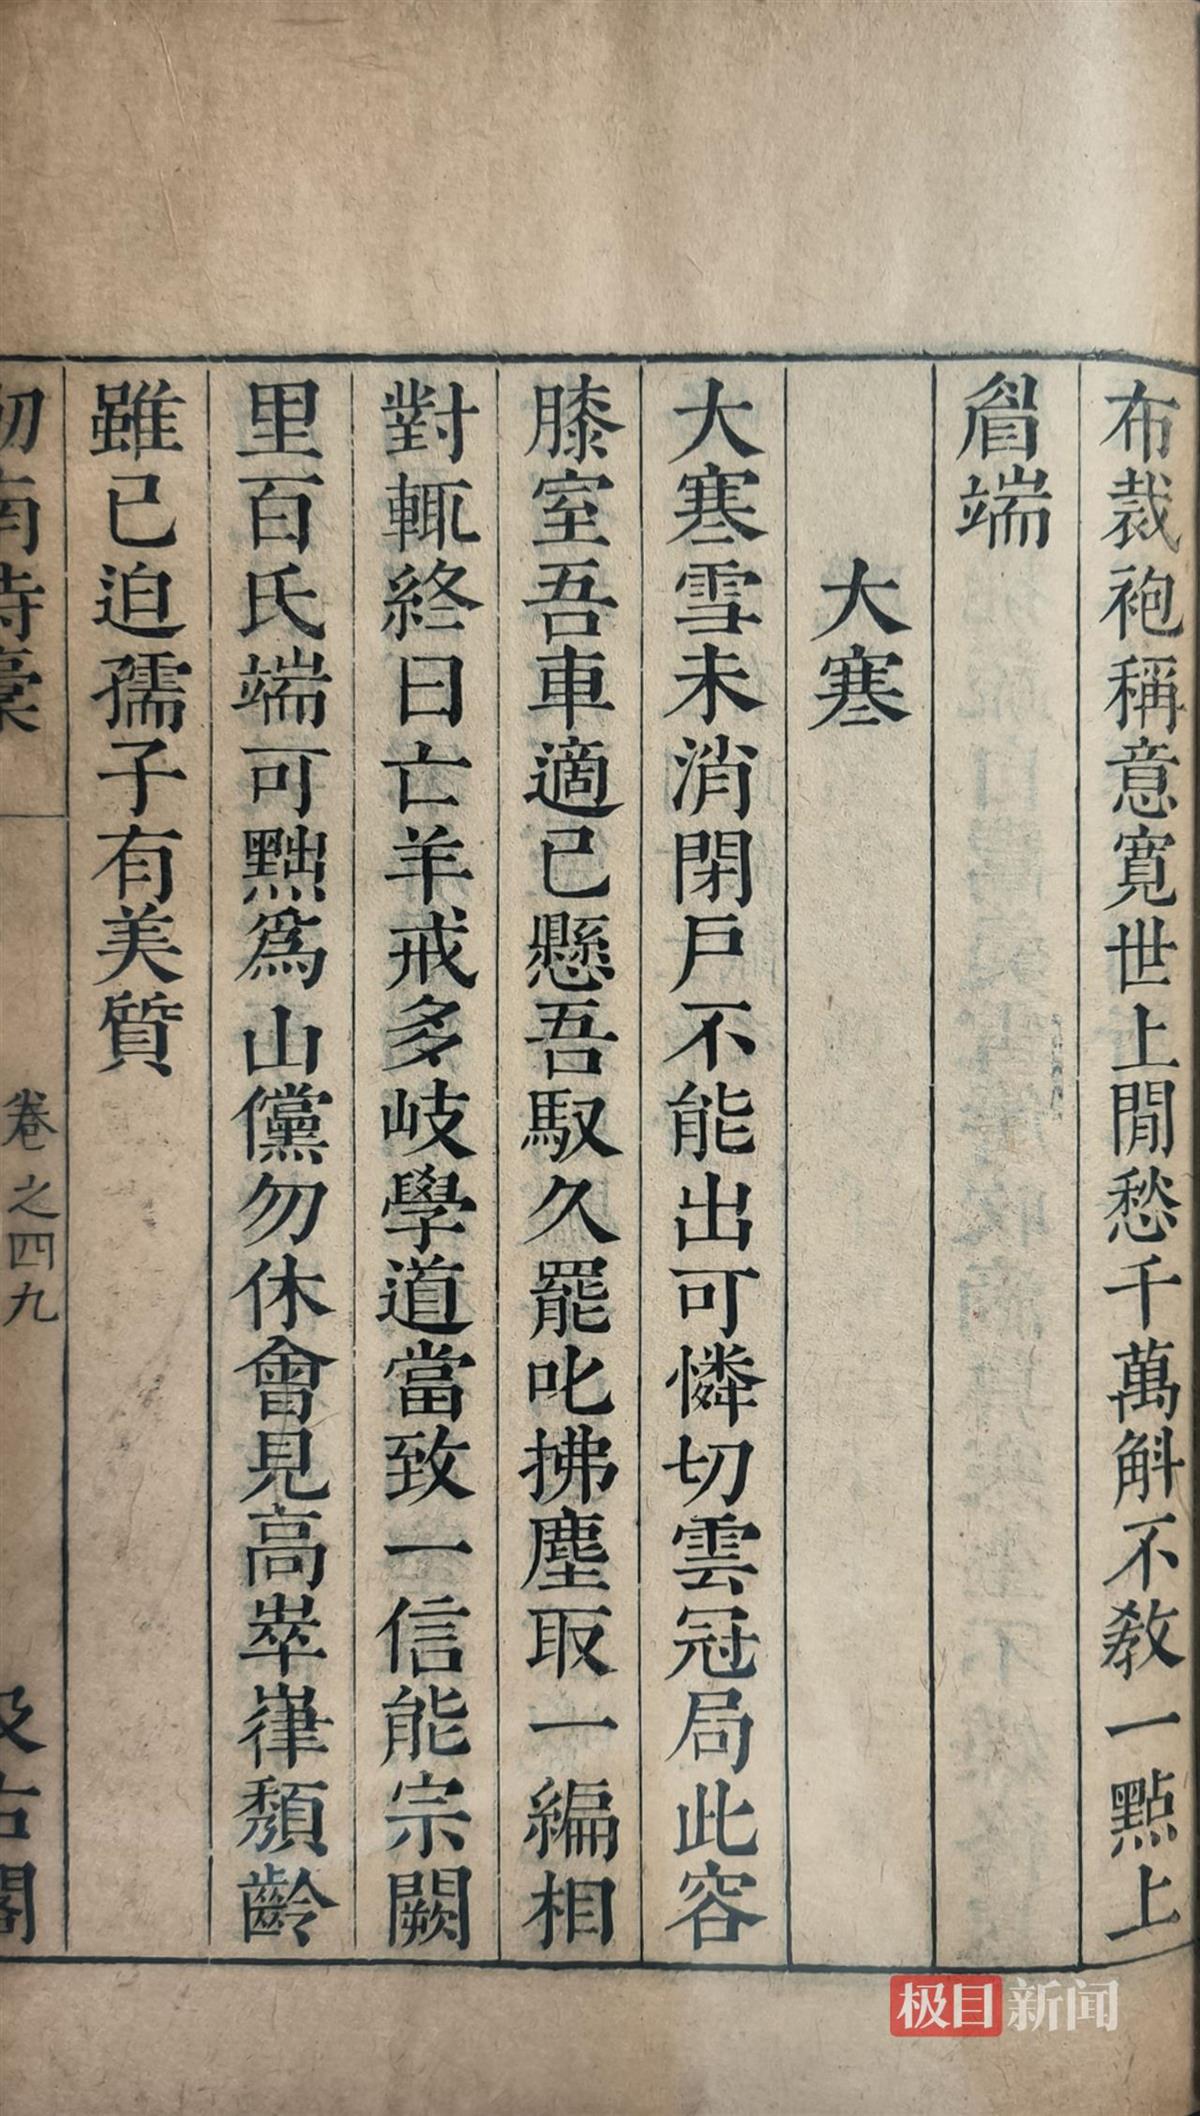 布裁袍稱意寬世上閒愁千萬斛不教一點上
眉端
大寒
大寒雪未消閉戶不能出可憐切雲冠局此容
膝室吾車適已懸吾馭久罷叱拂塵取一編相
對輒終日亡羊戒多岐學道當致一信能宗闕
里百氏端可黜爲山儻勿休會見高崒嵂頽齡
雖已迫孺子有美質
劒南詩稾
卷之四九
汲古閣
极目新闻